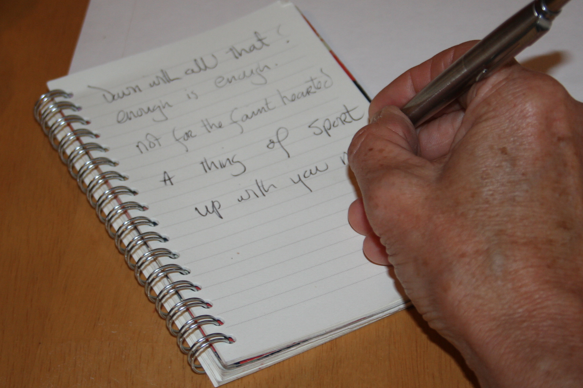 Down with all that!
enough is enough.
not for the faint hearted
A thing of sport
up with you